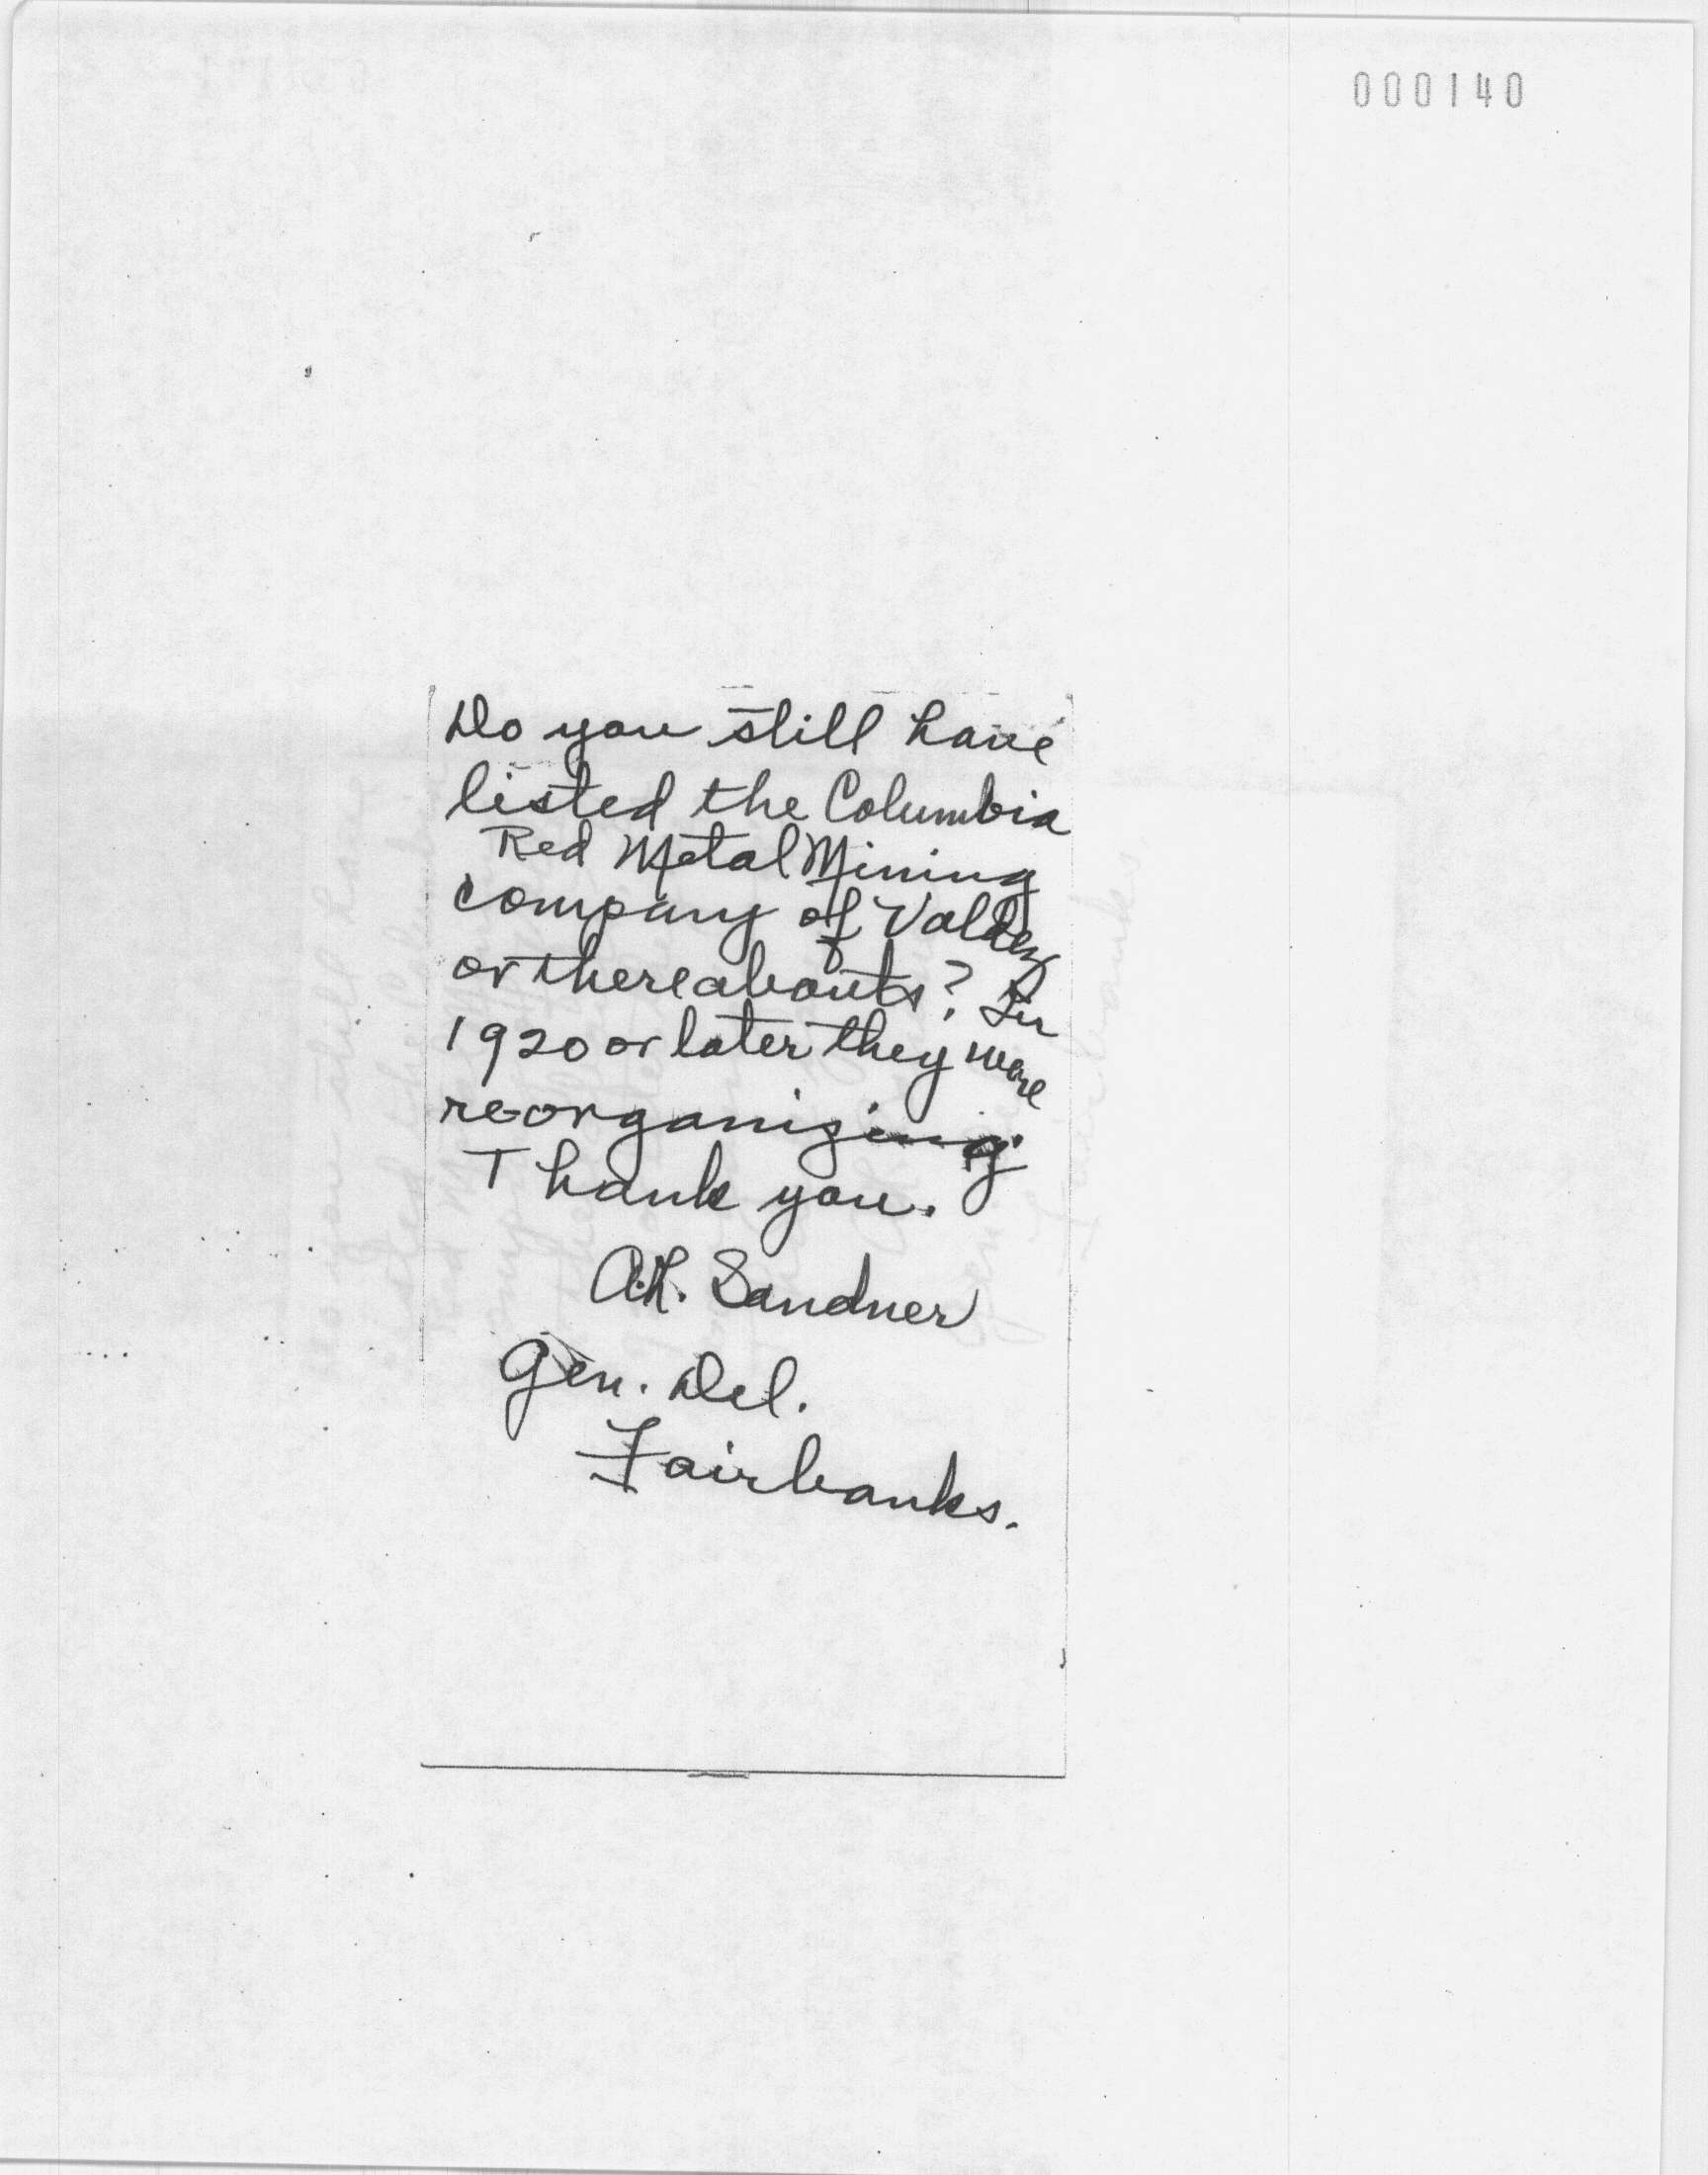 000140
Do you still have
listed the Columbia
Red Metal Mining
Company of Valdez
or thereabouts? In
1920 or later they were
reorganizing.
Thank you.
A.H. Sandner
Gen. Del.
Fairbanks.